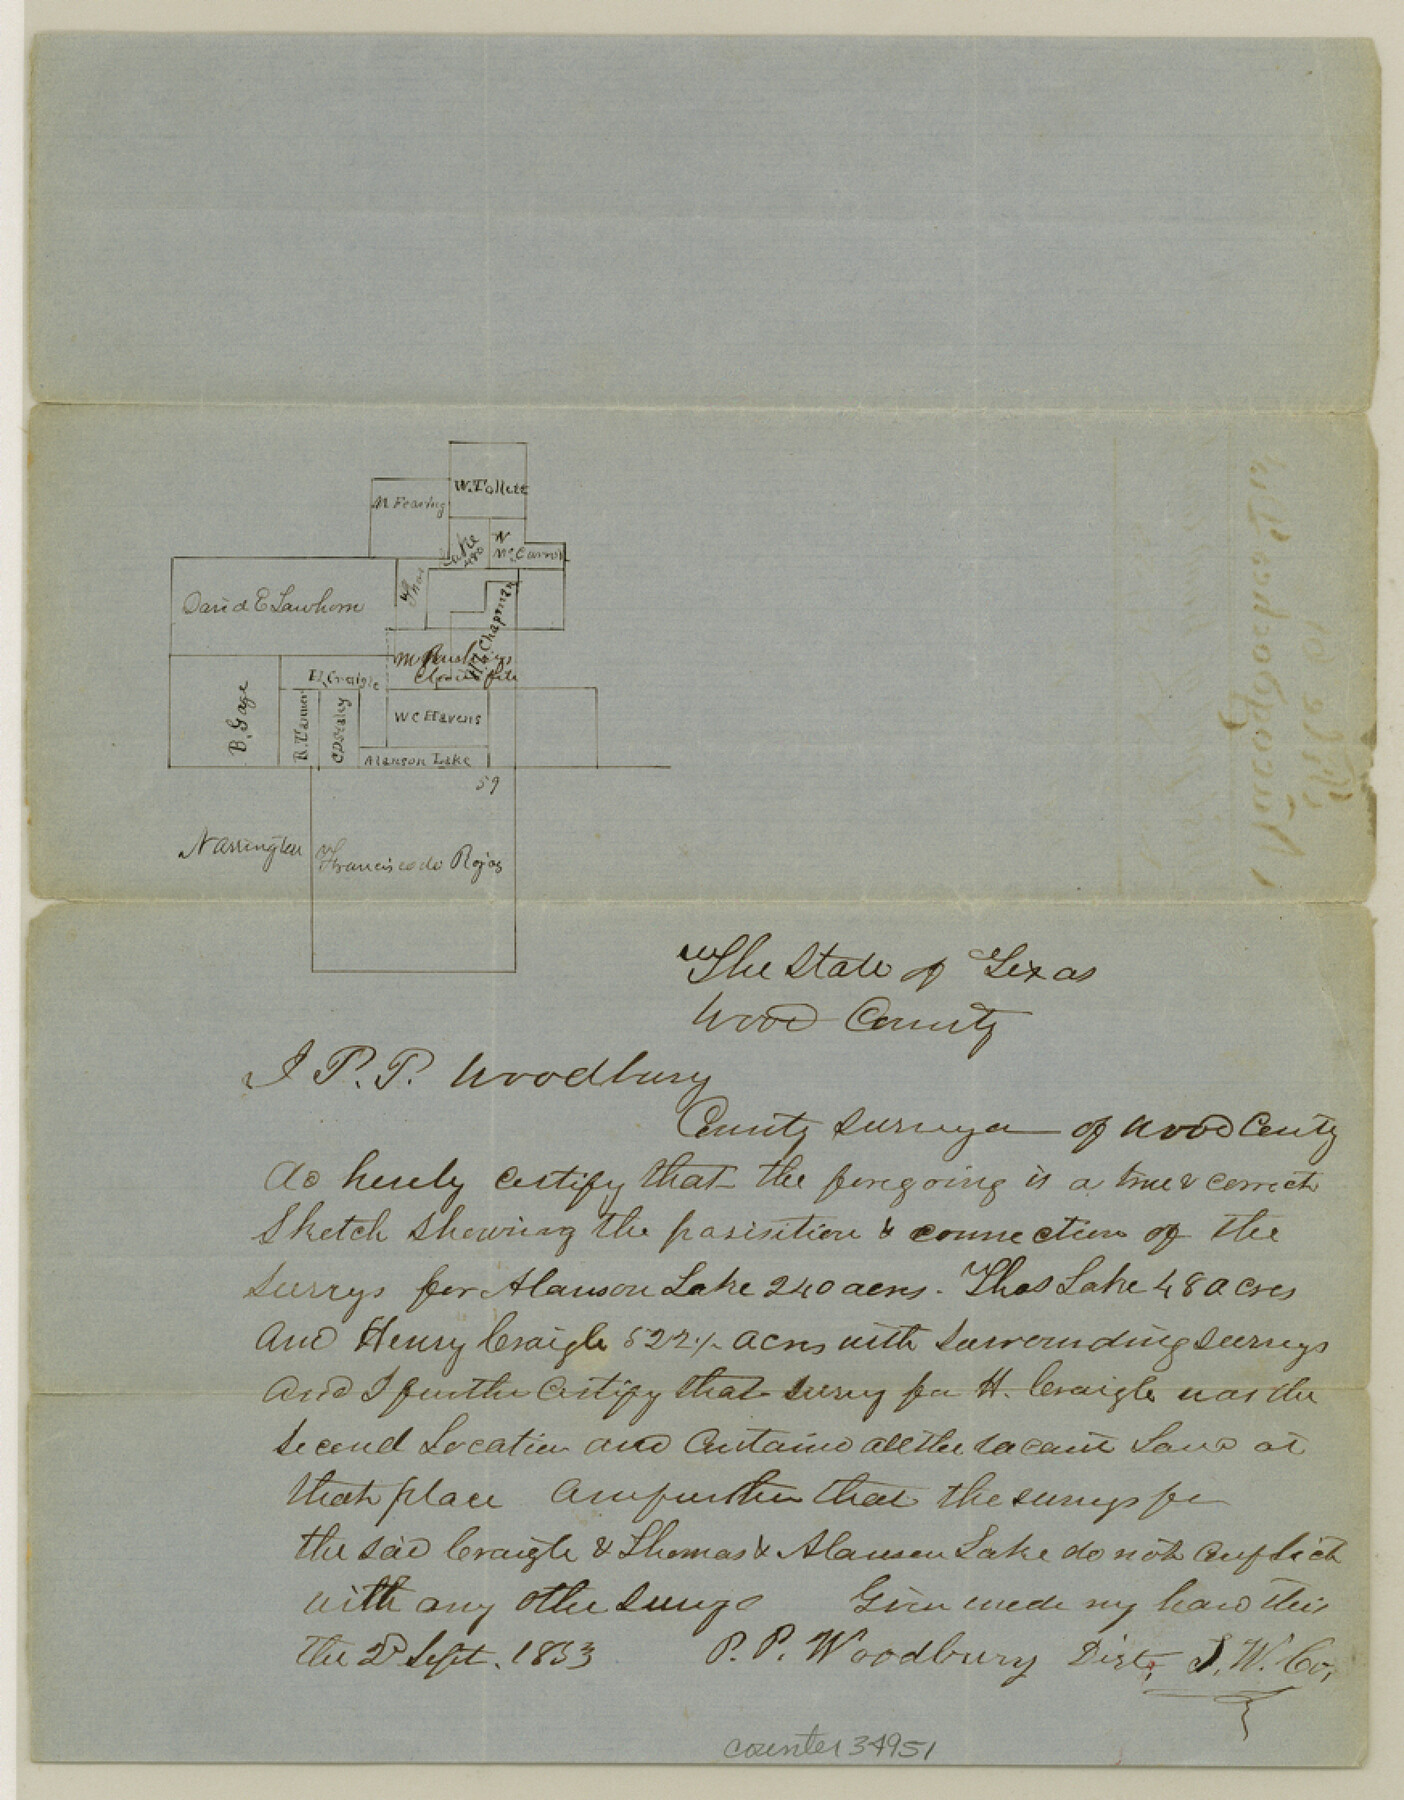 W. Tollett
M Fearing
Lake
480
N
McCarroll
Thos
David E Lawhorn
H Z Chapman
M Rushings
H, Craigle
B, Gage
R. Vanner
W C Havens
Alanson Lake
59
N Arrington
Francisco de Rojas
The State of Texas
Wood County
I P. P. Woodbury
County Surveyor of Wood County
do hereby certify that the foregoing is a true & correct
Sketch showing the posisition & connection of the
surveys for Alanson Lake 240 acres. Thos Lake 480 acres
And Henry Craigle 522 acres with surrounding surveys
And I further certify that survey for H. Craigle was the
second Location and Contains all the vacant Land at
that place And further that the surveys for
the said Craigle & Thomas & Alanson Lake do not conflict
with any other surveys Given under my hand this
the 2d Sept. 1853 P. P. Woodbury Dist, S, W. Co,
counter 34951